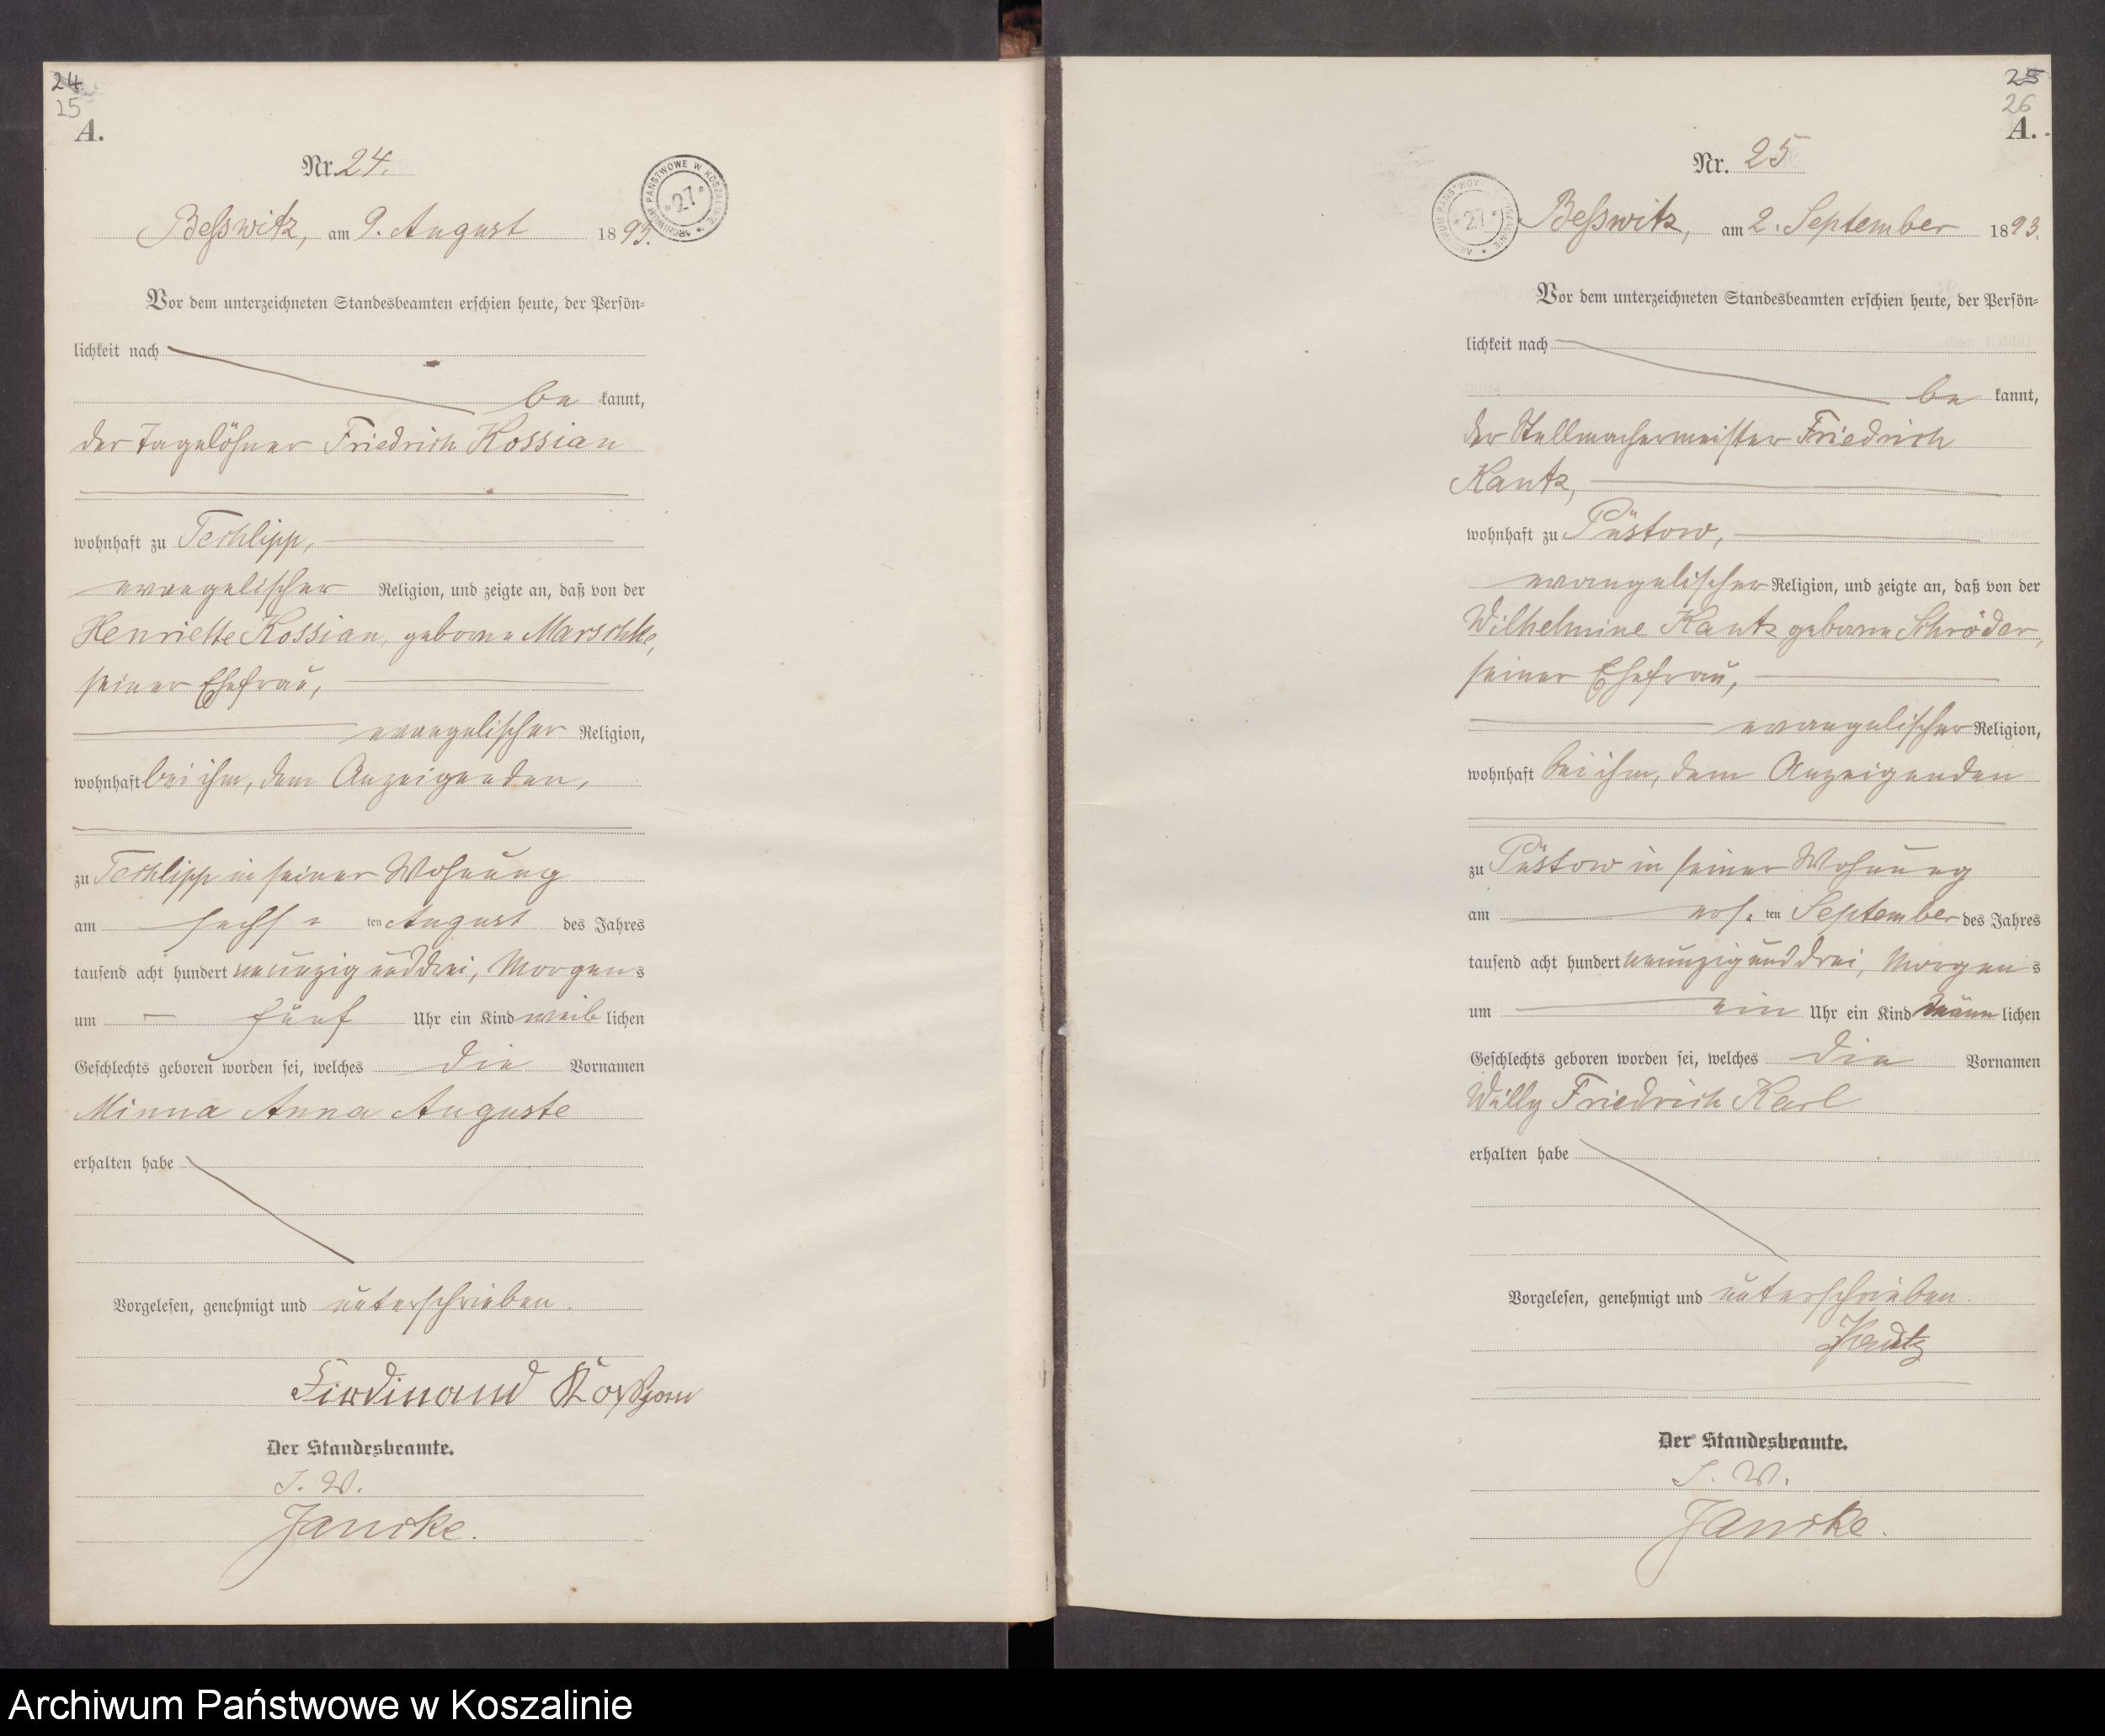 24
25
A.
Nr. 24.
ARCHIWUM PAŃSTWOWE W KOSZALINIE
* 27 *
Beßwitz, am 9. August 1893.
Vor dem unterzeichneten Standesbeamten erschien heute, der Persön-
lichkeit nach
be kannt,
der Tagelöhner Friedrich Kossian
wohnhaft zu Techlipp,
evangelischer Religion, und zeigte an, daß von der
Henriette Kossian, geborne Marschke,
seiner Ehefrau,
evangelischer Religion,
wohnhaft bei ihm, dem Anzeigenden,
zu Techlipp in seiner Wohnung
am sechs = ten August des Jahres
tausend acht hundert neunzig und drei, Morgens
um fünf Uhr ein Kind weiblichen
Geschlechts geboren worden sei, welches die Vornamen
Minna Anna Auguste
erhalten habe
Vorgelesen, genehmigt und unterschrieben.
Ferdinand
Der Standesbeamte.
J. V.
Jancke.
25
26
A.
Nr. 25
ARCHIWUM PAŃSTWOWE W KOSZALINIE
* 27 *
Beßwitz, am 2. September 1893.
Vor dem unterzeichneten Standesbeamten erschien heute, der Persön-
lichkeit nach
be kannt,
der Stellmachermeister Friedrich
Kautz,
wohnhaft zu Püstow,
evangelischer Religion, und zeigte an, daß von der
Wilhelmine Kautz geborne Schröder,
seiner Ehefrau,
evangelischer Religion,
wohnhaft bei ihm, dem Anzeigenden
zu Püstow in seiner Wohnung
am ers. ten September des Jahres
tausend acht hundert neunzig und drei, Morgens
um ein Uhr ein Kind männlichen
Geschlechts geboren worden sei, welches die Vornamen
Willy Friedrich Karl
erhalten habe
Vorgelesen, genehmigt und unterschrieben.
Kautz
Der Standesbeamte.
J. V.
Jancke.
Archiwum Państwowe w Koszalinie